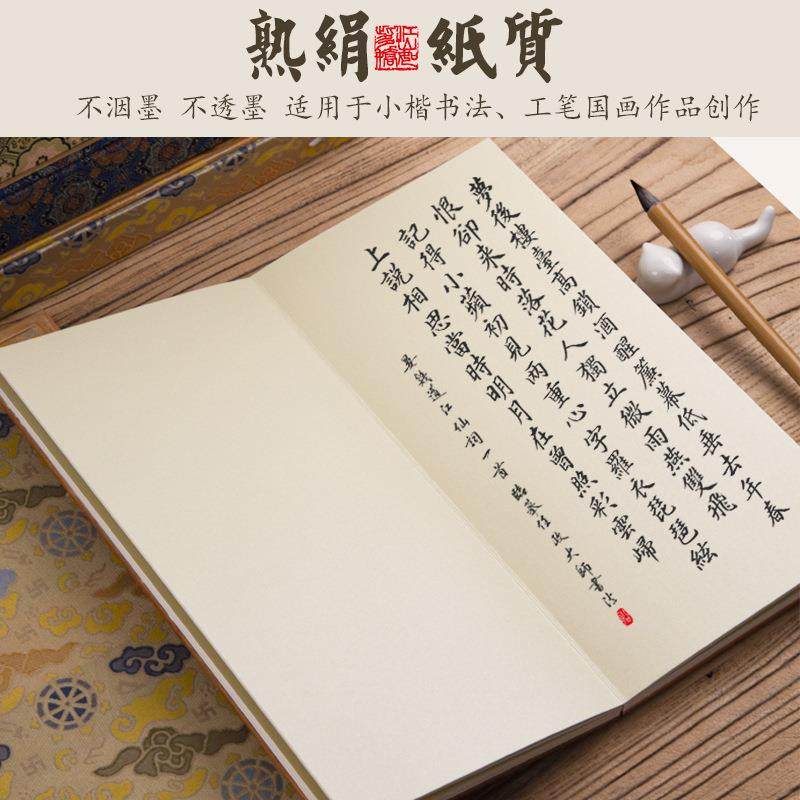 熟絹 紙质
不洇墨 不透墨 适用于小楷书法、工笔国画作品创作
夢後樓臺高鎖酒醒簾幕低垂去年春
恨卻来時落花人獨立微雨燕雙飛
記得小蘋初見兩重心字羅衣琵琶絃
上説相思當時明月在曾照彩雲歸
晏幾道江仙詞一首 臨摹任政大師書法